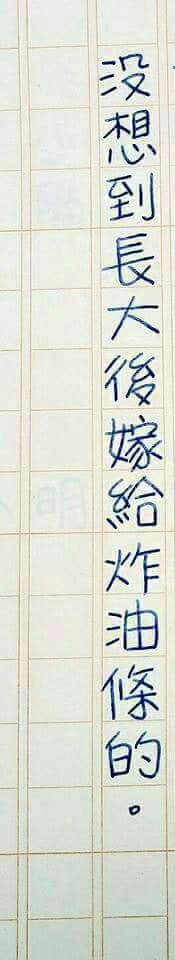 没想到長大後嫁給炸油條的。